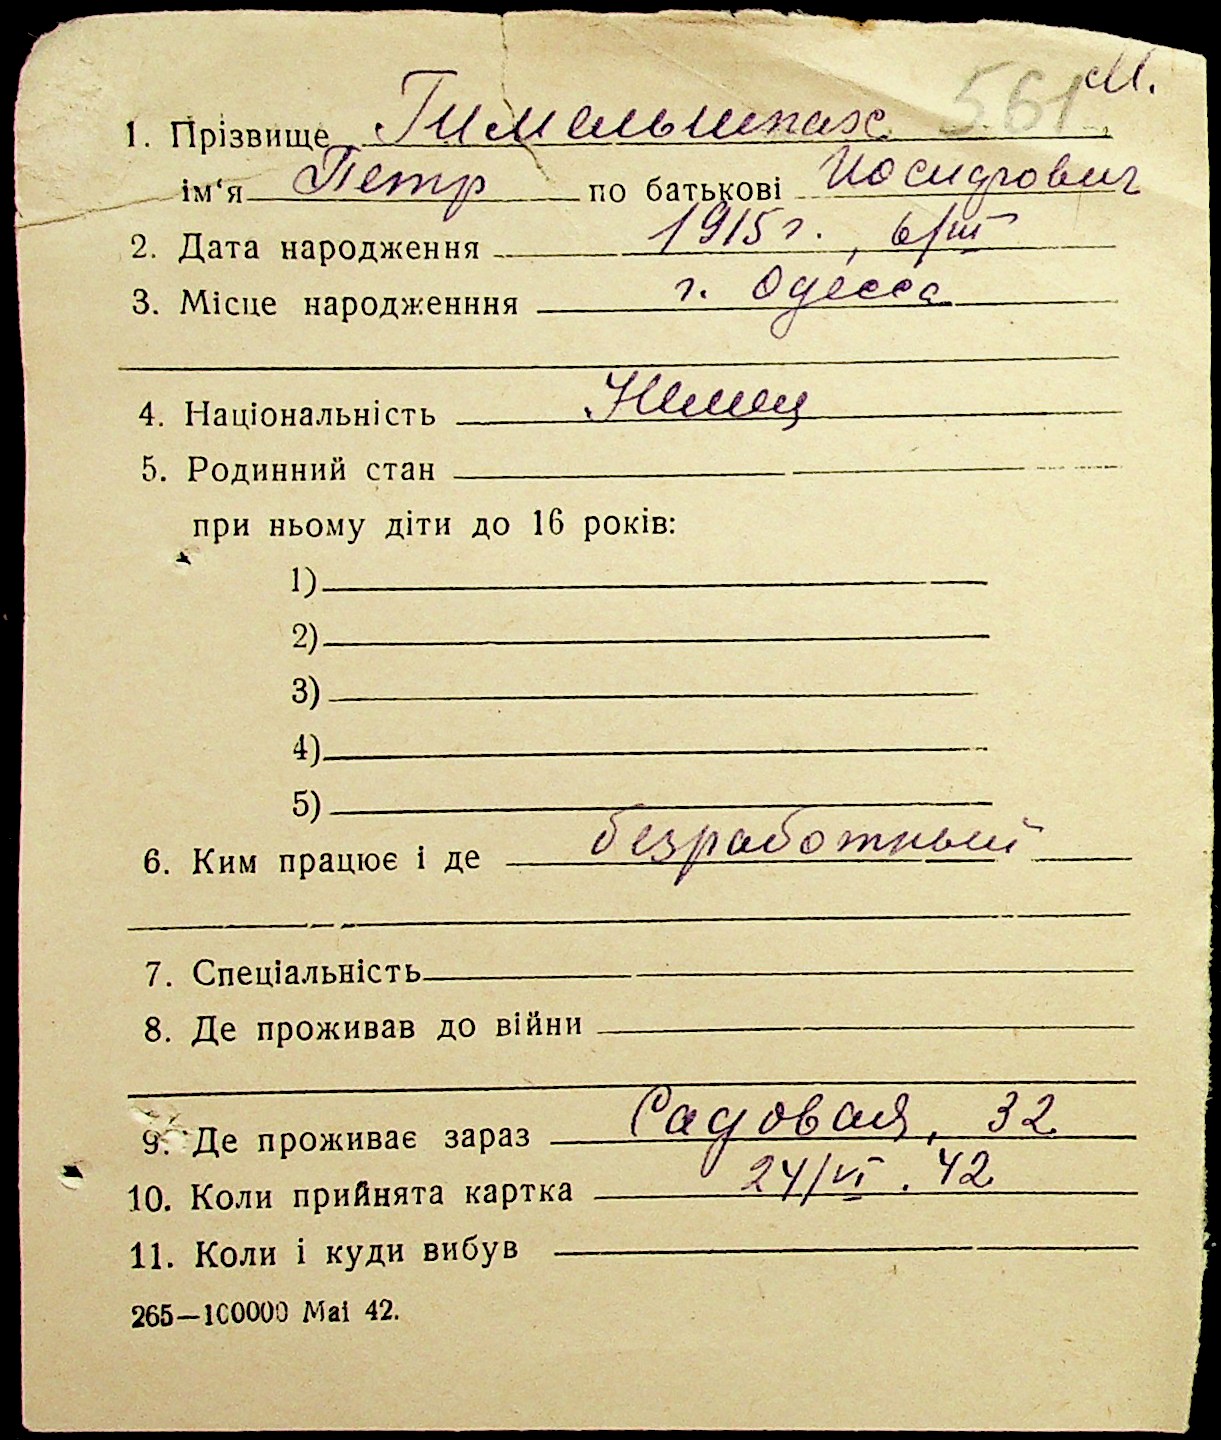 561 М.
1. Прізвище Гимельшпах
ім‘я Петр по батькові Иосифович
2. Дата народження 1915 г., 6/III
3. Місце народженння г. Одесса
4. Національність Немец
5. Родинний стан
при ньому діти до 16 років:
1)
2)
3)
4)
5)
6. Ким працює і де безработный
7. Спеціальність
8. Де проживав до війни
9. Де проживає зараз Садовая, 32
10. Коли прийнята картка 24/VI. 42
11. Коли і куди вибув
265—100000 Mai 42.